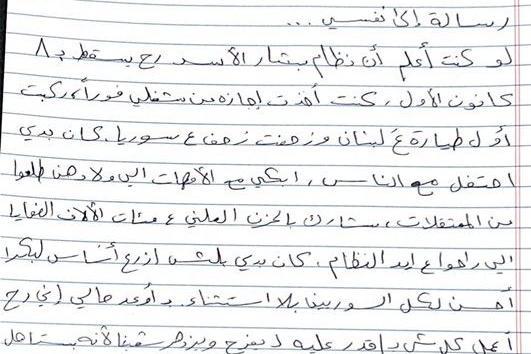 رسالة إلى نفسي ...
لو كنت أعلم أن نظام بشار الأسد رح يسقط بـ ٨
كانون الأول، كنت أخذت إجازة من شغلي فوراً، ركبت
أول طيارة عَ لبنان وزحفت زحف ع سوريا. كان بدي
احتفل مع الناس، ابكي مع الأمهات الي ولادهن طلعوا
من المعتقلات، شارك بالحزن العلني ع مئات الألاف الضحايا
الي راحوا ع ايد النظام. كان بدي بلش ازرع أساس لبكرا
أحسن لكل السوريين بلا استثناء. وأوعد حالي إني رح
أعمل كل شي بقدر عليه ليفرح ويزدهر شعبنا لأنه بستاهل